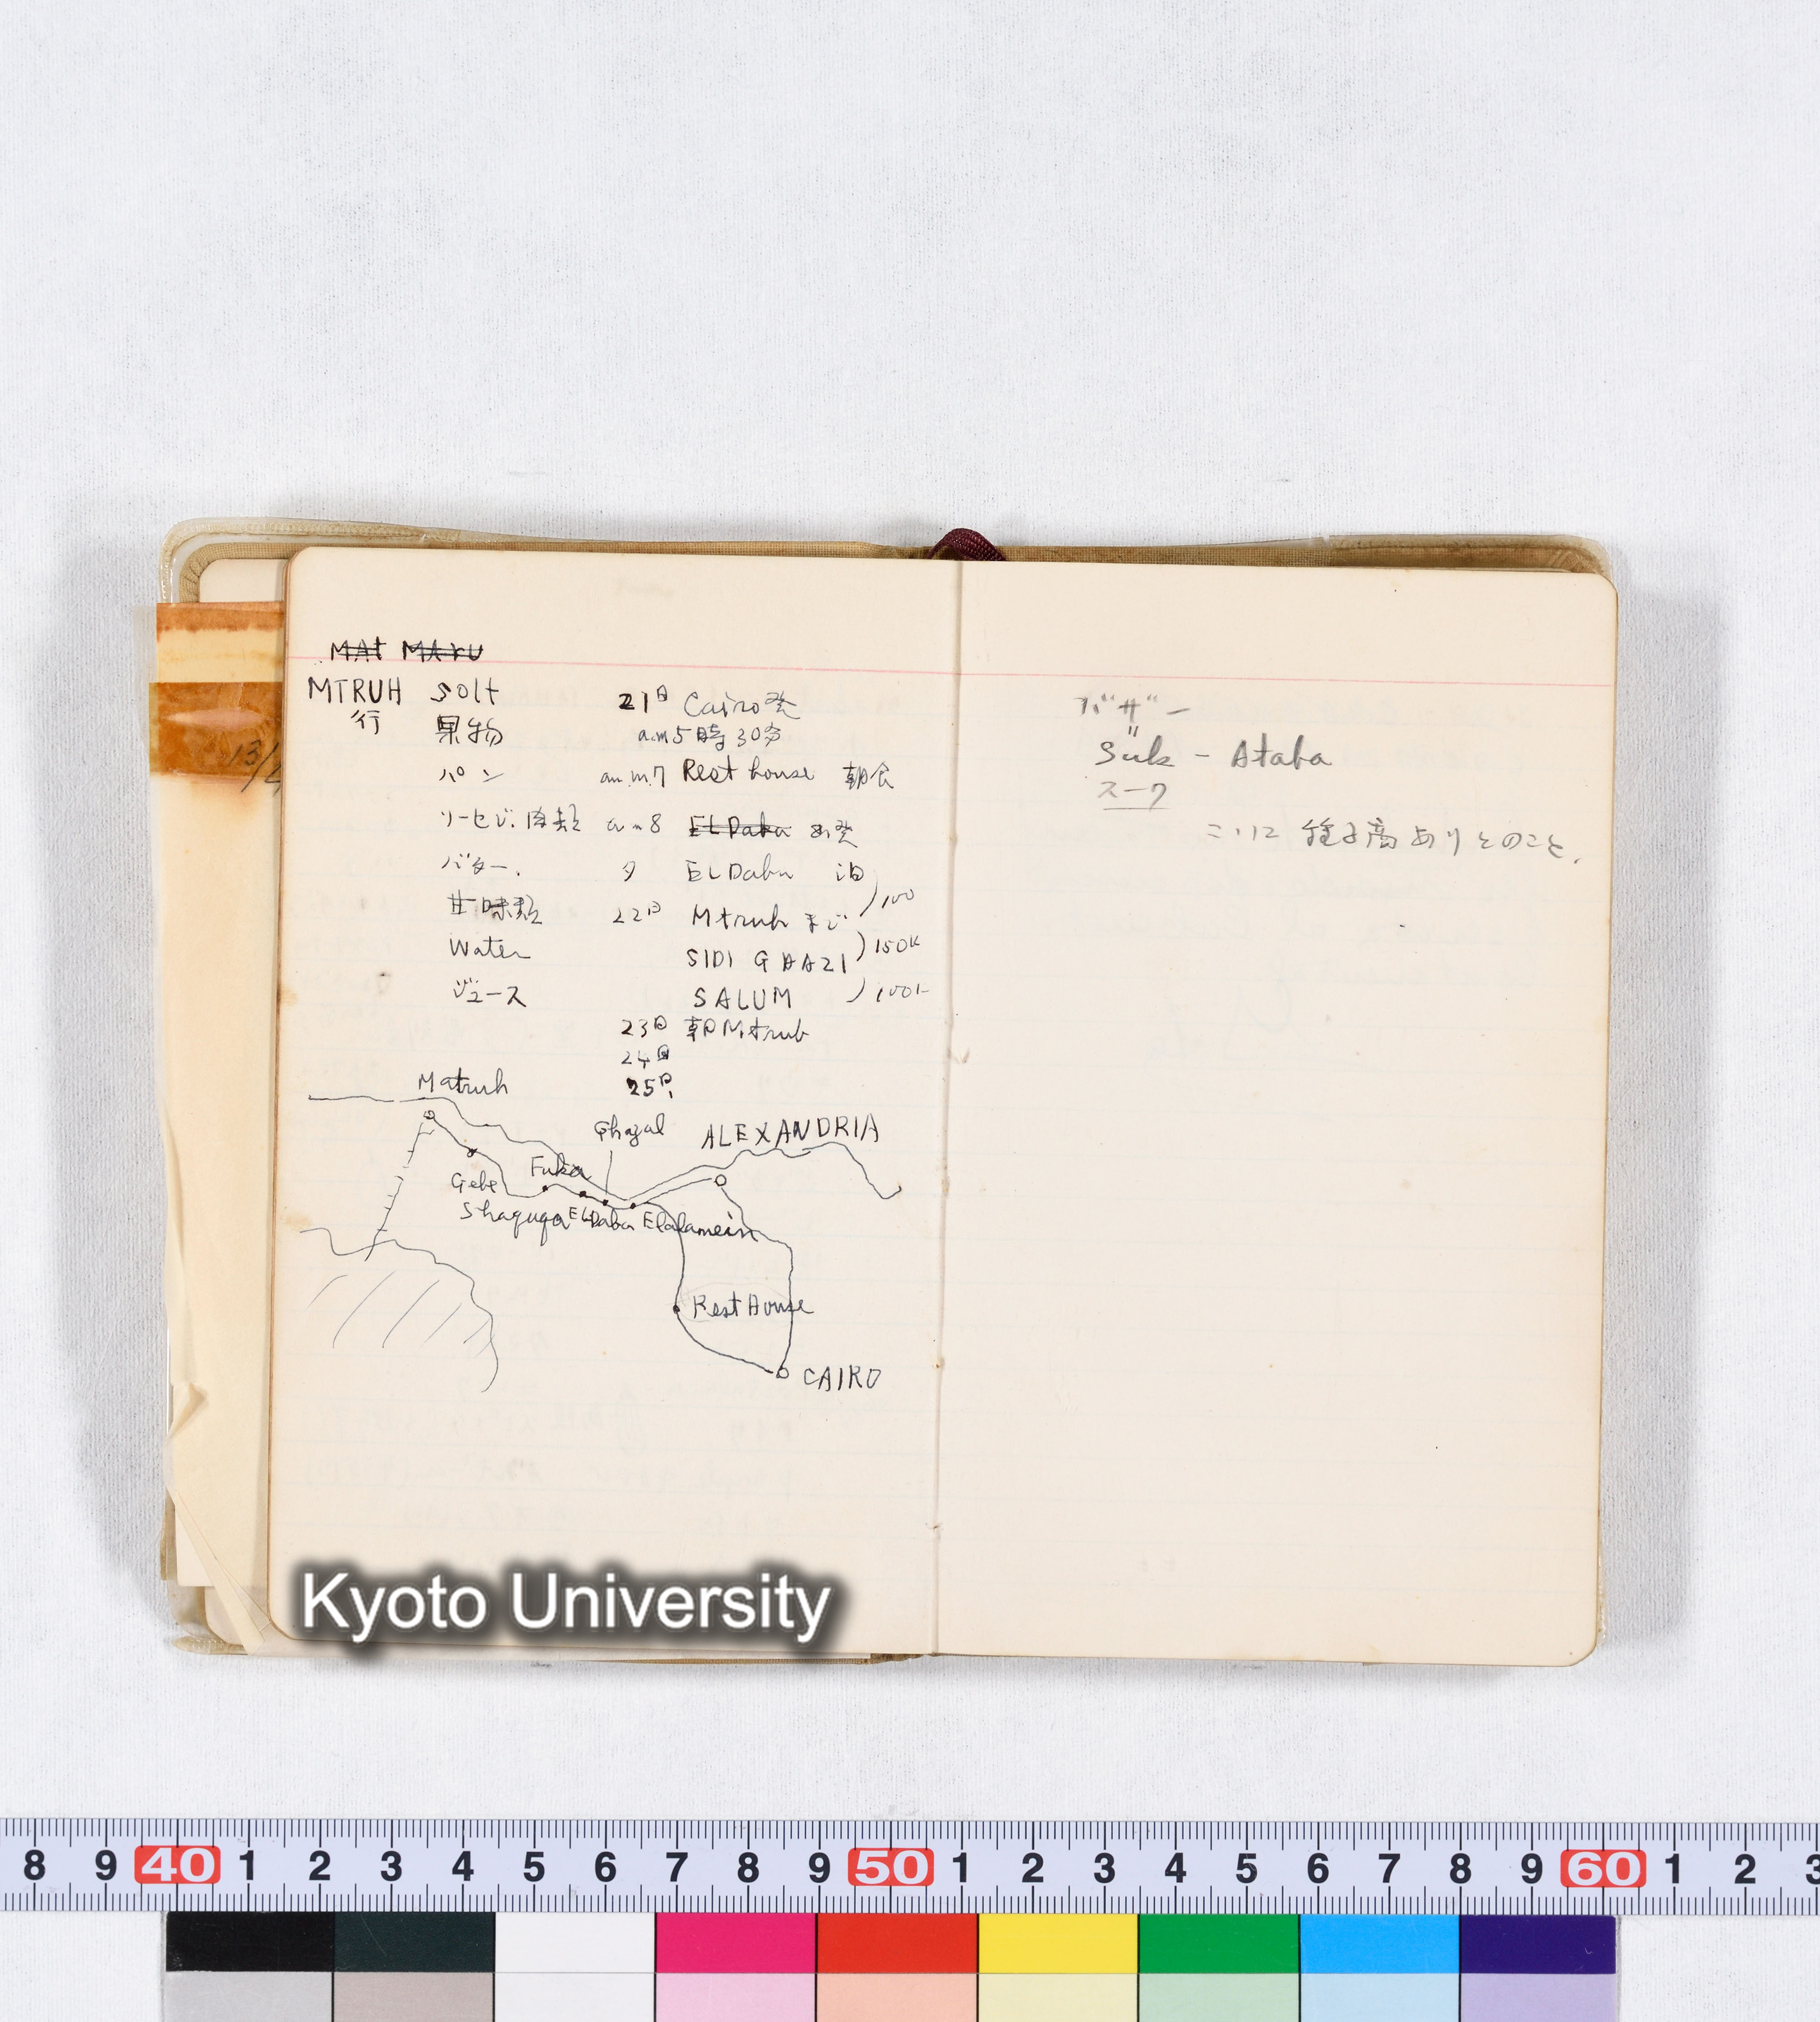 MAt MAru
MTRUH
行
solt
果物
パン
ソーセジ. 肉類
バター.
甘味類
Water
ジュース
21日 Cairo発
a.m5時30分
am.m.7 Rest house 朝食
am8 EL Daba 発
夕 EL Daba 泊
)100
22日 Mtruh まで
)150K
SIDI
SALUM
)100K
23日 朝Mtruh
24日
25日
Matruh
Ghazal
ALEXANDRIA
Fuka
Gebe
Shaquqa EL Daba Elalamein
Rest House
CAIRO
バザー
〃
Suk - Ataba
スーク
ここに 種子商ありとのこと.
13/
Kyoto University
8 9 40 1 2 3 4 5 6 7 8 9 50 1 2 3 4 5 6 7 8 9 60 1 2 3